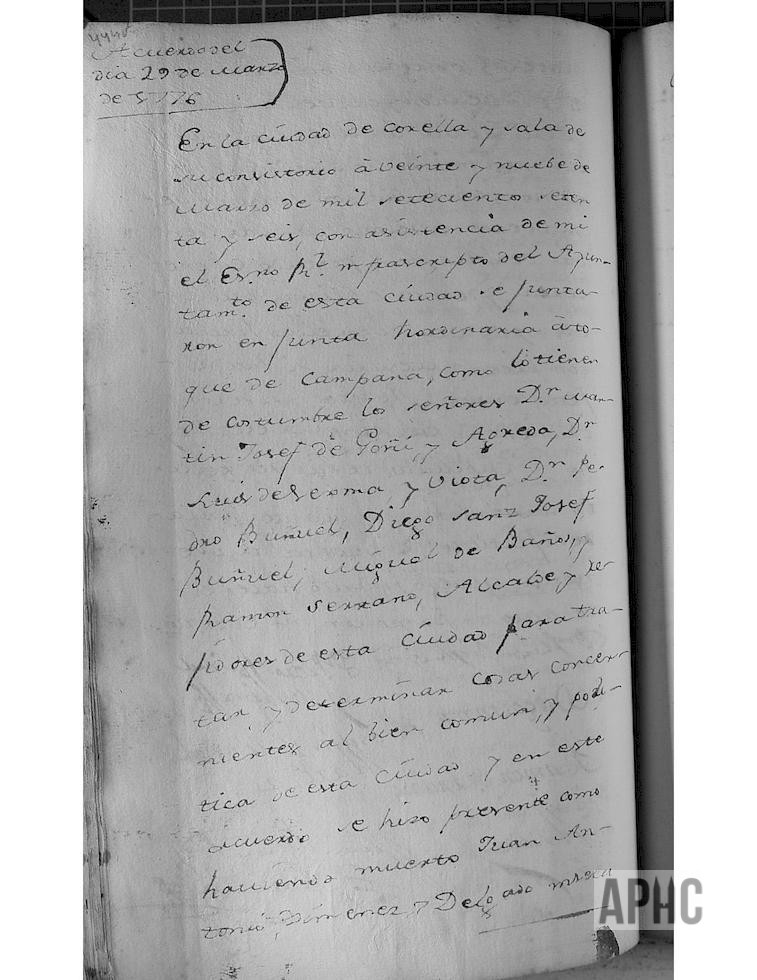 Acuerdo del
dia 29 de Marzo
de 1776
En la ciudad de corella y sala de
su consistorio à veinte y nuebe de
Marzo de mil setecientos seten
ta y seis, con asistencia de mi
el Es.no Rl. infrascripto del Ayun-
tam.to de esta ciudad se junta-
ron en junta hordinaria à to-
que de Campana, como lo tienen
de costumbre los señores Dn. Mar-
tin Josef de Goñi, y Agreda, Dn.
Luis de Serma y Viota, Dn. Pe-
dro Buñuel, Diego Sanz Josef
Buñuel, Miguel de Baños, y
Ramon Serrano, Alcalde y re-
jidores de esta ciudad para tra-
tar, y determinar cosas concer-
nientes al bien comun, y poli-
tica de esta ciudad y en este
acuerdo se hizo presente como
haviendo muerto Juan An-
tonio Ximenez y Delgado
APHC